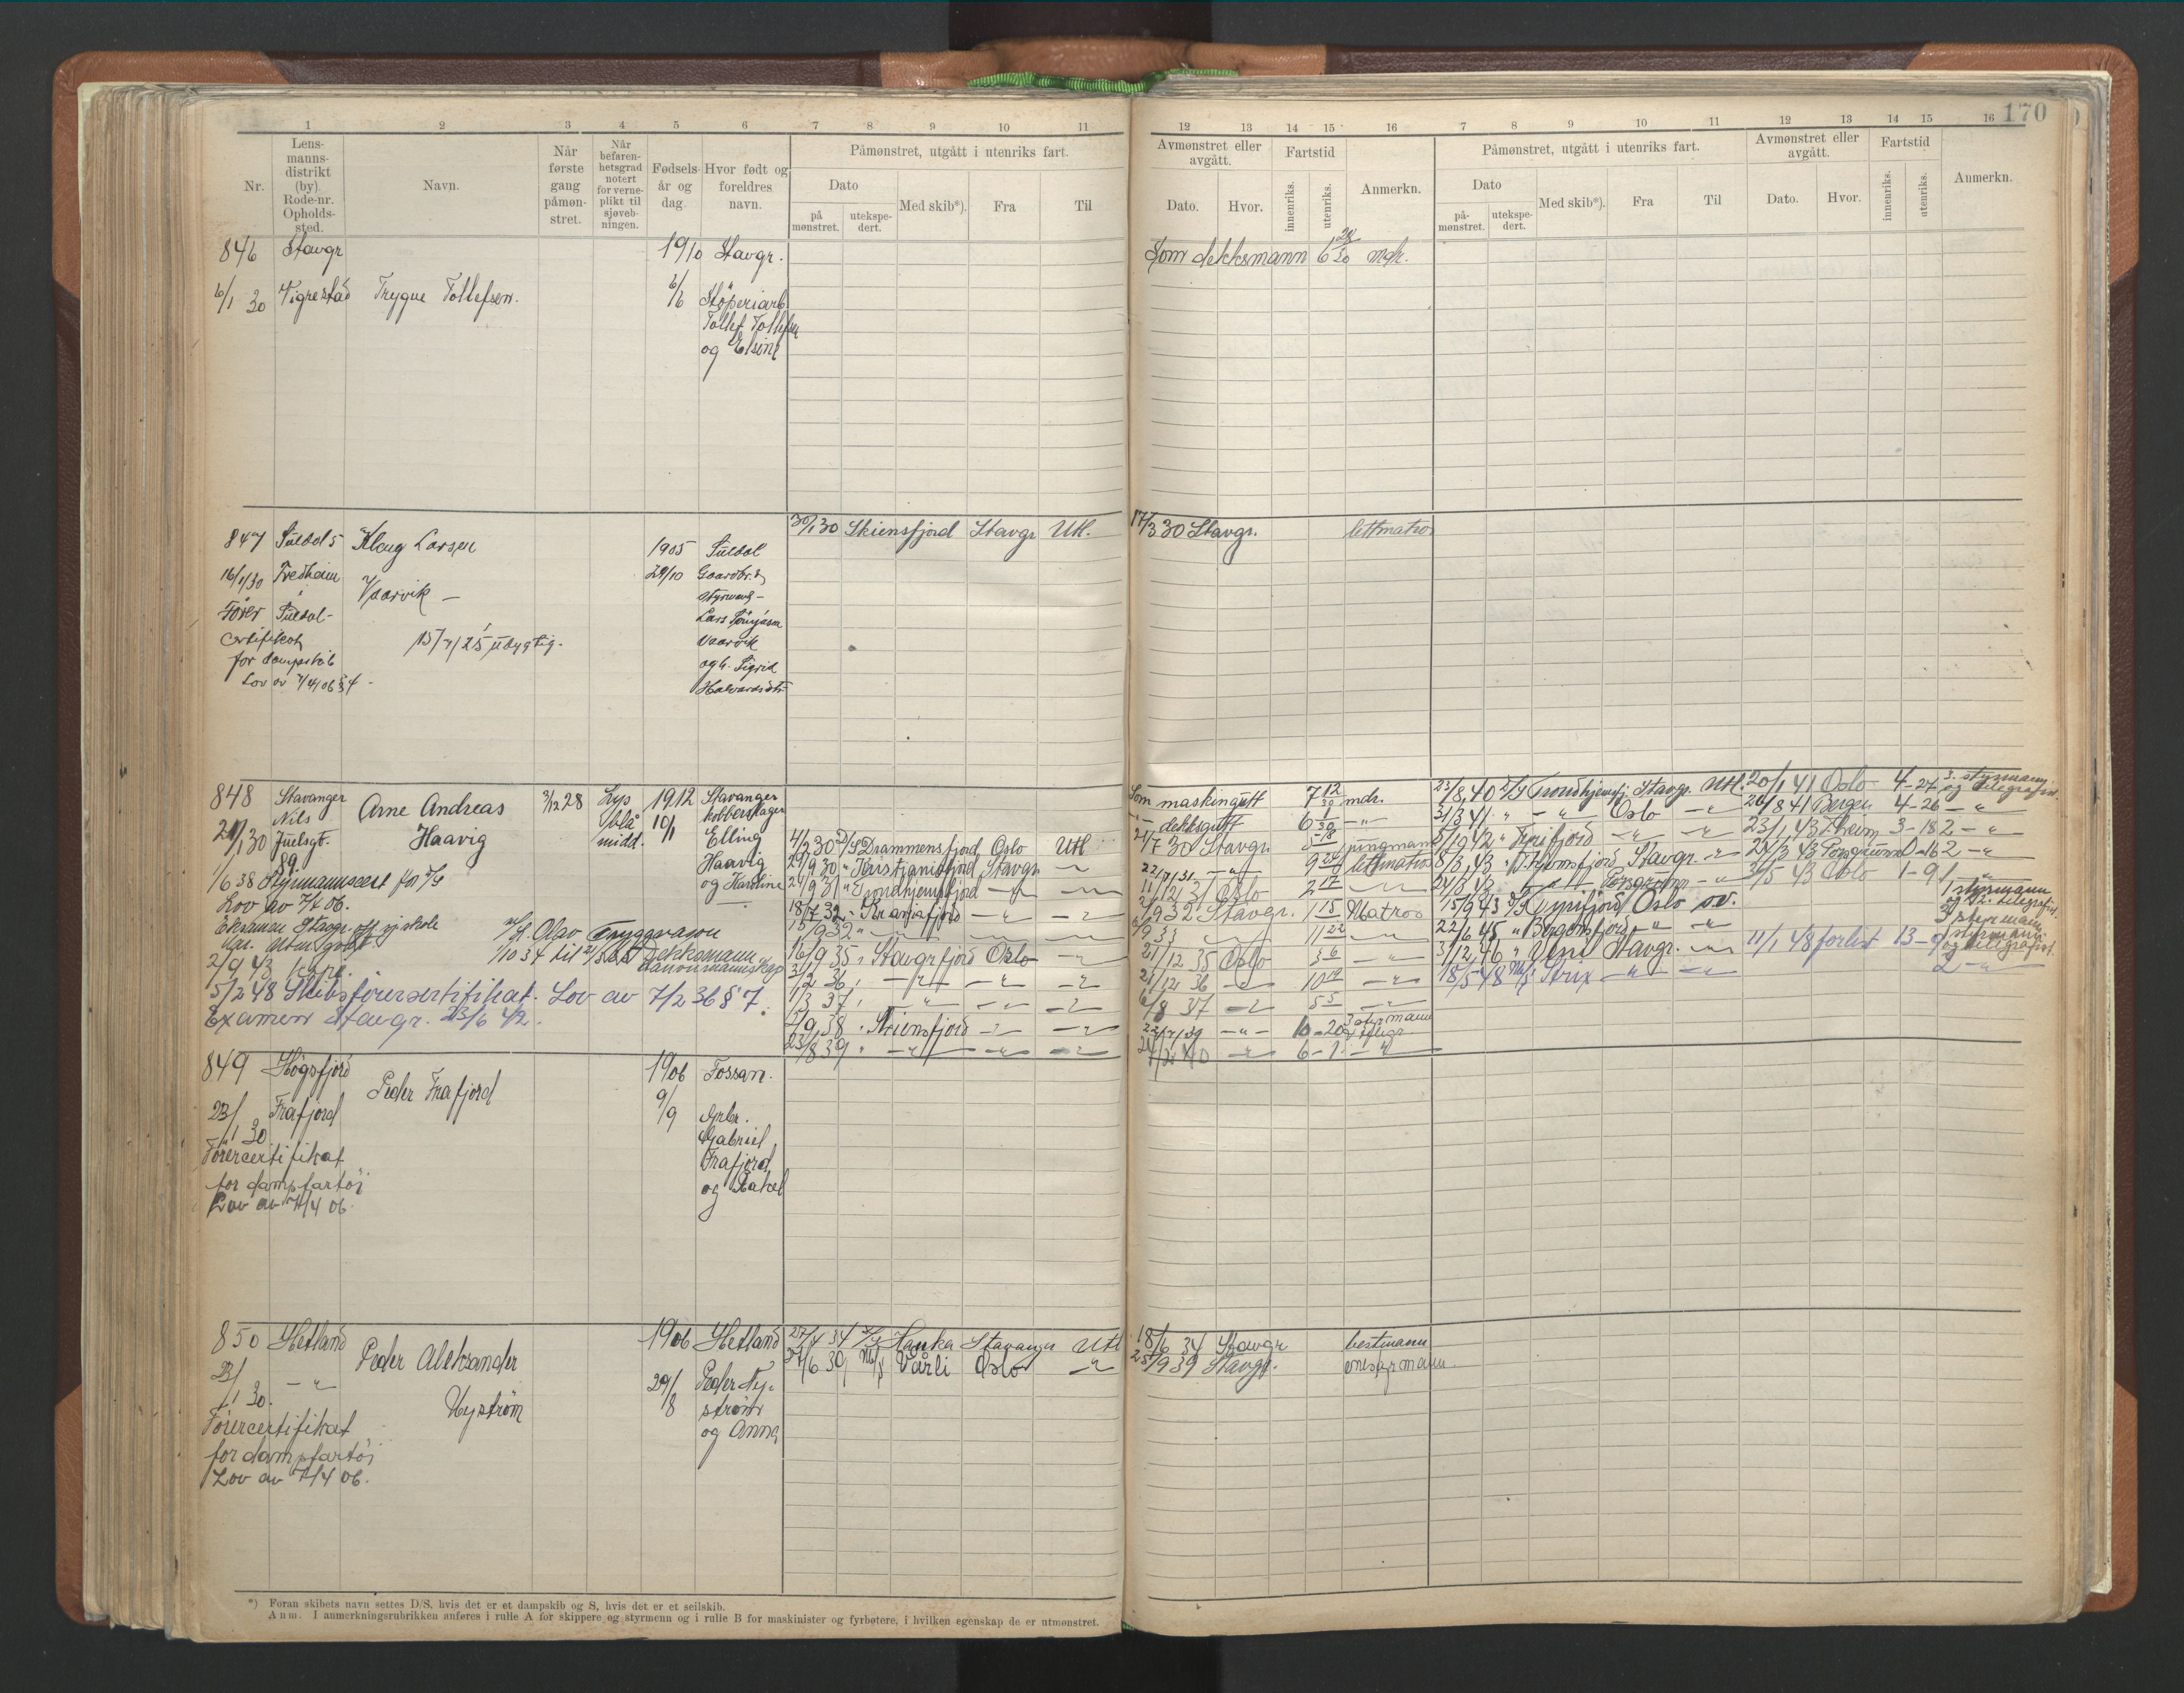 170
1 2 3 4 5 6 7 8 9 10 11
Nr.
Lens-
manns-
distrikt
(by).
Rode-nr.
Opholds-
sted.
Navn.
Når
første
gang
påmøn-
stret.
Når
befaren-
hetsgrad
notert
for verne-
plikt til
sjøveb-
ningen.
Fødsels-
år og
dag.
Hvor født og
foreldres
navn.
Påmønstret, utgått i utenriks fart.
Dato
på
mønstret.
utekspe-
dert.
Med skib*).
Fra
Til
12 13 14 15 16 7 8 9 10 11 12 13 14 15 16
Avmønstret eller
avgått.
Dato.
Hvor.
Fartstid
innenriks.
utenriks.
Anmerkn.
Påmønstret, utgått i utenriks fart.
Dato
på-
mønstret.
utekspe-
dert.
Med skib*).
Fra
Til
Avmønstret eller
avgått.
Dato.
Hvor.
Fartstid
innenriks.
utenriks.
Anmerkn.
846 Stavgr
1910 Stavgr.
Som dekksmann 6 28/30 mdr.
6/1 30 Tigrestad Trygve Tollefsen.
6/6 Støperiarb.
Tollef Tollefsen
og Elsine
30/1 30 Skiensfjord Stavgr Utl.
17/3 30 Stavgr. lettmatros
847 Suldal Klaug Larsen
1905 Suldal
16/1/30 Fredheim
29/10 Gaardbr. &
Vaarvik
styrmand
Fører Suldal
Certifikat
for dampskib
Lov av 7/4/06 § 4
15/4/25 udygtig.
Vaarvik
og h. Sigrid
848 Stavanger
Nils
Juelsgt.
89
Arne Andreas
Haavig
3/12 28 Lys
blå
midd.
1912
10/1
Stavanger
kobberslager
Elling
Haavig
og Karoline
21/1 30
1/6 38 Styrmannscert for D/S
Lov av 7/4 06.
Eksamen Stavgr. off sjøskole
S/S Olav Tryggvason
2/9 43
5/2 48 Skibsførersertifikat. Lov av 7/2 36 § 7.
Examen Stavgr. 23/6 42.
4/2 30 D/S Drammensfjord Oslo Utl
29/9 30 " Kristianiafjord Stavgr. "
21/9 31 " Trondhjemsfjord
18/7 32 " Kraniafjord
15/9 32 "
16/9 35 " Stavgrfjord Oslo
3/2 36
1/3 37
2/9 38 " Skiensfjord
23/8 39 "
Som maskingutt 7 12/30 mdr.
" dekksgutt 6 1/30 "
21/7 30 Stavgr. jungmann
22/7/31 lettmatros
11/12 31 Oslo 2 17
2/7 32 Stavgr. 1 15 Matros
6/9 33 11 22
21/12 35 Oslo 3 6
21/12 36 10 19
6/8 37 5 5
22/7/39 10 - 20 3 styrmann
7/2 40 6 - 1
23/8 40 D/S Trondhjemsfj. Stavgr. Utl. 20/1 41 Oslo 4 - 27 3. styrmann
og telegrafist.
31/3 41 " " Oslo 26/8 41 Bergen 4-26 "
5/10 42 " Tyrifjord 23/1 43 T.heim 3-18 2 "
8/3 43 " Tr.hjemsfjord Stavgr. 24/3 43 Porsgrunn 0-16 2 "
24/3 43 Porsgrunn 3/5 43 Oslo 1-9 1 "
15/9 43 D/S Tyrifjord Oslo 1 styrmann
og 2. telegrafist.
22/6 45 " Bergensfjord 3 styrmann
3/12 46 " Veni Stavgr. 11/1 48 forlist 13 styrmann
og telegrafist.
18/5 48 M/S Strix 2 "
849 Høgsfjord Peder Frafjord
1906 Fossan.
23/1 30 Frafjord
9/9 Grbr.
Gabriel
Frafjord
og Rakel
Førercertifikat
for dampfartøi
Lov av 7/4 06.
850 Hetland Peder Aleksander
Nystrøm
1906 Hetland
29/8 Peder Ny-
strøm
og Anna
23/1 30. "
Førercertifikat
for dampfartøi
Lov av 7/4 06.
27/4 34 Hauka Stavanger Utl 18/6 34 Stavgr bestmann
24/6 39 M/S Vårli Oslo " 25/9 39 Stavgr. enestyrmann.
*) Foran skibets navn settes D/S, hvis det er et dampskib og S, hvis det er et seilskib.
Anm. I anmerkningsrubrikken anføres i rulle A for skippere og styrmenn og i rulle B for maskinister og fyrbøtere, i hvilken egenskap de er utmønstret.